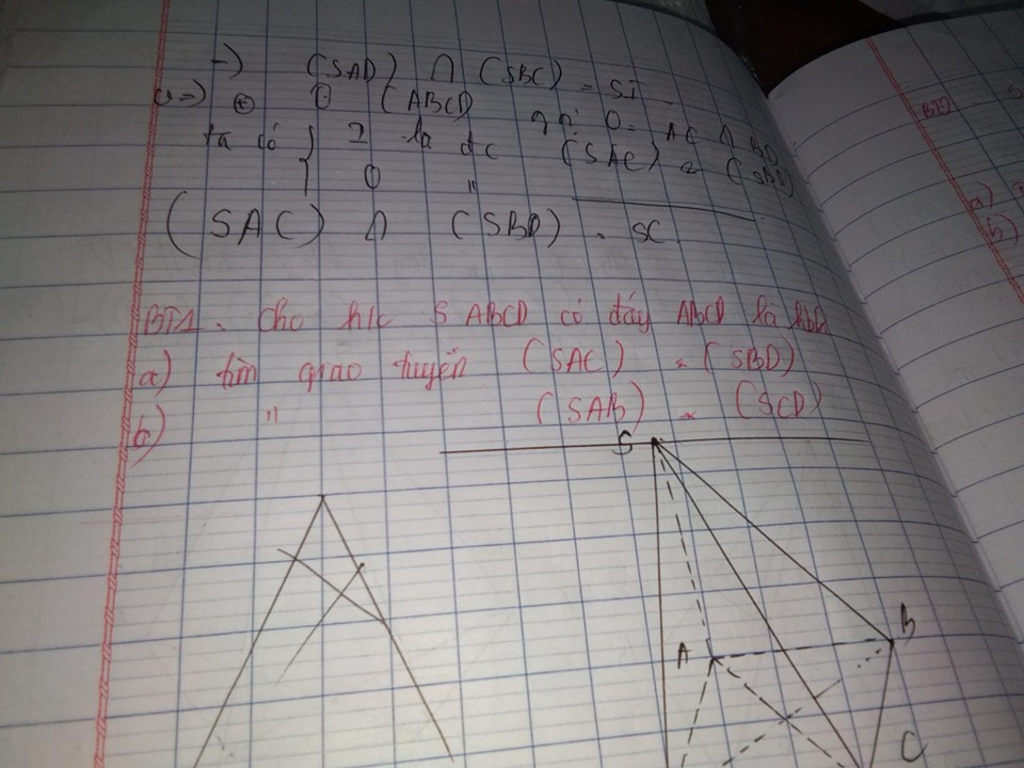 -) (SAD) ∩ (SBC) = SI
(ABCD)
O = AC ∩ BD
ta có } I là đc (SAC) (SBD)
} O "
(SAC) ∩ (SBD) = SC
BT1. Cho h/c S ABCD có đáy ABCD là hbh
a) tìm giao tuyến (SAC) (SBD)
b) " (SAB) (SCD)
S
A
B
C
BTD
a)
b)